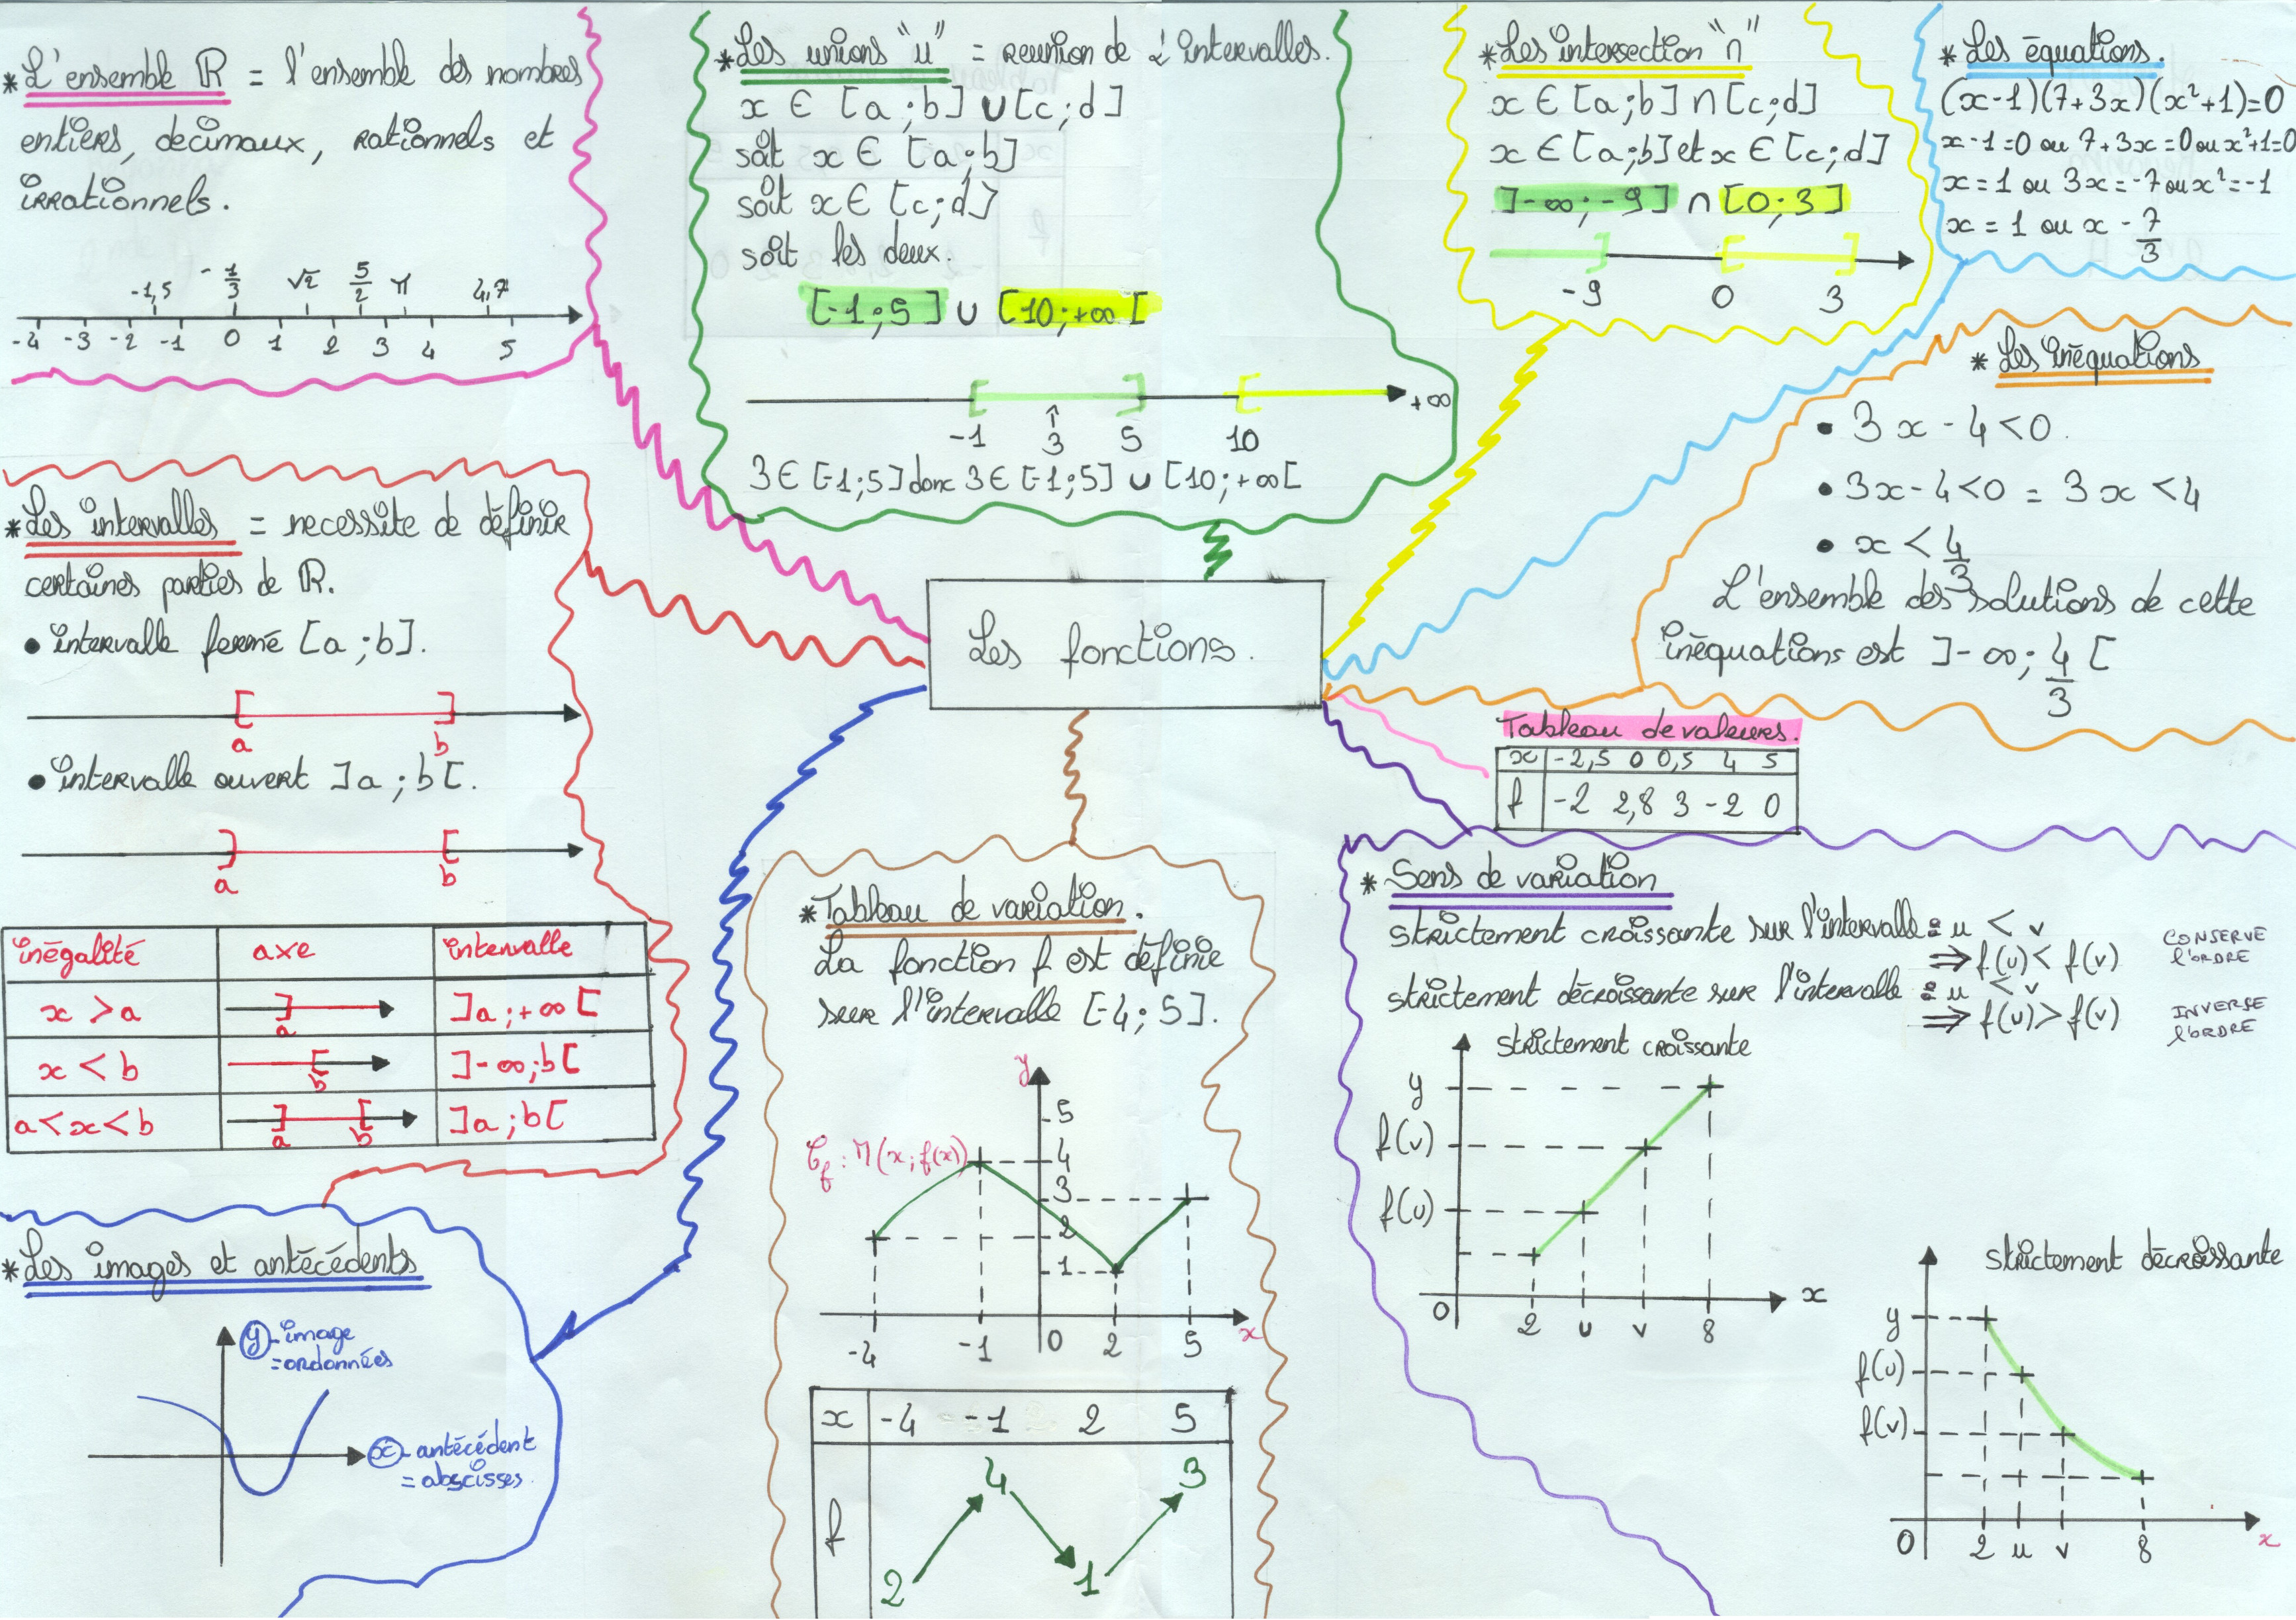 *L'ensemble ℝ = l'ensemble des nombres
entiers, decimaux, rationnels et
irrationnels.
-1,5 -1/3 √2 5/2 π 4,7
-4 -3 -2 -1 0 1 2 3 4 5
*Les unions "u" = reunion de 2 intervalles.
x ∈ [a;b] ∪ [c;d]
soit x ∈ [a;b]
soit x ∈ [c;d]
soit les deux.
[-1;5] ∪ [10;+∞[
+∞
-1 3 5 10
3 ∈ [-1;5] donc 3 ∈ [-1;5] ∪ [10;+∞[
*Les intersection "n"
x ∈ [a;b] ∩ [c;d]
x ∈ [a;b] et x ∈ [c;d]
]-∞;-9] ∩ [0;3]
-9 0 3
*Les équations.
(x-1)(7+3x)(x²+1)=0
x-1=0 ou 7+3x=0 ou x²+1=0
x=1 ou 3x=-7 ou x²=-1
x = 1 ou x - 7/3
*Les inéquations
• 3x-4<0.
• 3x-4<0 = 3x<4
• x < 4/3
L'ensemble des solutions de cette
inéquations est ]-∞; 4/3 [
*Les intervalles = necessite de définir
certaines parties de ℝ.
• intervalle fermé [a;b].
a b
• intervalle ouvert ]a;b[.
a b
inégalité axe intervalle
x > a a ]a;+∞[
x < b b ]-∞;b[
a<x<b a b ]a;b[
Les fonctions.
Tableau de valeurs.
x -2,5 0 0,5 4 5
f -2 2,8 3 -2 0
*Les images et antécédents
y-image
=ordonnées
x-antécédent
=abscisses.
*Tableau de variation.
La fonction f est définie
sur l'intervalle [-4;5].
y
5
Cf : M(x;f(x)) 4
3
2
1
-4 -1 0 2 5 x
x -4 -1 2 5
4 3
f
2 1
* Sens de variation
strictement croissante sur l'intervalle : u < v
⇒ f(u) < f(v) CONSERVE l'ORDRE
strictement décroissante sur l'intervalle : u < v
⇒ f(u) > f(v) INVERSE l'ORDRE
strictement croissante
y
f(v)
f(u)
0 2 u v 8 x
strictement décroissante
y
f(u)
f(v)
0 2 u v 8 x